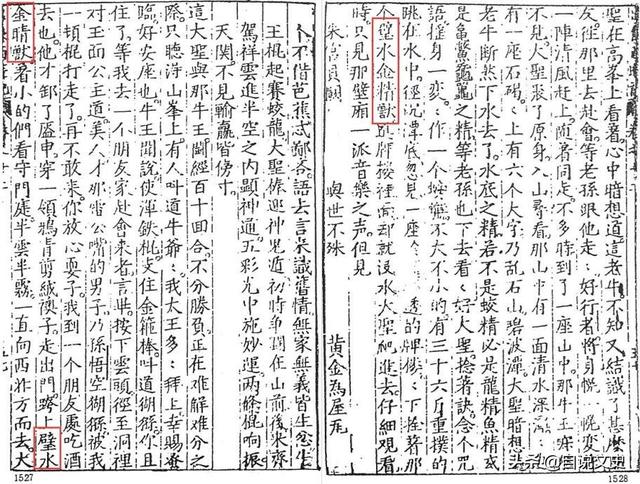 卜不借芭蕉忒鄙吝語去言來識舊情無家無義皆生忿牛
王棍起賽蛟龍大聖棒迎神鬼遁初時爭鬭在山前後來齊
駕祥雲進半空之内顯神通五彩光中施妙運兩條棍响振
天關不見輸嬴皆傍寸
這大聖與那牛王鬪經百十回合不分勝負正在難解難分之
際只聽淂山峯上有人叫道牛爺〻我大王多〻拜上幸賜登
臨好安座也牛王聞說使渾鉄棍支住金箍棒叫道猢猻你且
住了等我去一個朋友家赴會來者言畢按下雲頭徑至洞裡
對王面公主道美人才那雷公嘴的男子乃孫悟空猢猻被我
一頓棍打走了再不敢來你放心耍子我到一個朋友處吃酒
去也他才卸了盔甲穿一領鴉青剪絨襖子走出門跨上壁水
金睛獸著小的們看守門庭半雲半霧一直向西北方而去大
1527
聖在高峯上看著心中暗想道這老牛不知又結識了甚麼
友徃那里去赴會等老孫跟他走〻好行者將身愰一愰變
一陣清風赶上隨著同走不多時到了一座山中那牛王寂
不見大聖聚了原身入山尋看那山中有一面清水深潭〻
有一座石碣〻上有六個大字乃乱石山碧波潭大聖暗想
老牛斷然下水去了水底之精若不是蛟精必是龍精魚精或
是龜鱉黿鼉之精等老孫也下去看〻好大聖捻著訣念个咒
語搖身一變〻作一個螃蠏不大不小的有三十六斤重撲的
跳在水中徑沉潭底忽見一座透的牌樓〻下拴著那
个壁水金精獸牌樓裡面却就没水大聖爬進去仔細觀看
時只見那壁廂一派音樂之声但見
朱宮貝闕 與世不殊 黃金為屋瓦
1528